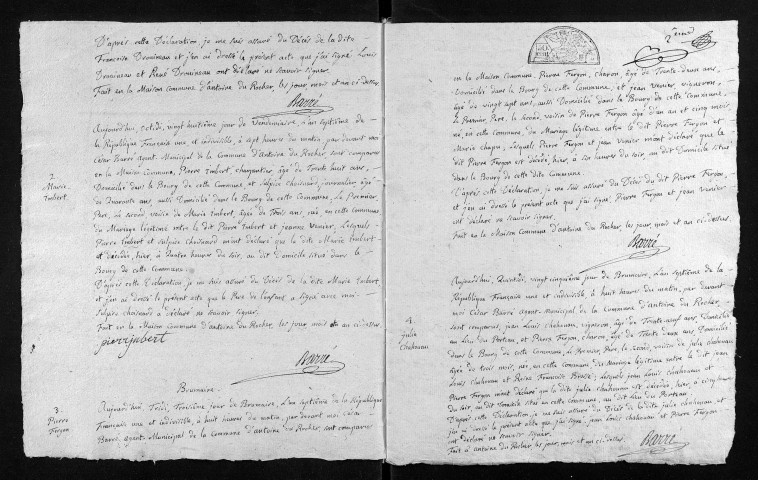 D'après cette Déclaration, je me suis assuré du Décès de la dite
Françoise Dronineau et j'en ai dressé le présent acte que j'ai signé. Louis
Dronineau et René Dronineau ont déclaré ne scavoir signer.
Fait en la Maison Commune d'antoine du Rocher, les jour mois et an ci-dessus
Barré
2.
Marie
Imbert
Aujourd'hui, octidi, vingt huitième jour de Vendemiaire, L'an septième de
la République Français une et indivisible, à sept heures du matin, par devant moi
César Barré agent Municipal de la Commune d'Antoine du Rocher, sont comparus
en la Maison Commune, Pierre Imbert, charpentier, âgé de Trente huit ans,
Domicilié dans le Bourg de cette Commune et Sulpice choisnard, journalier, âgé
de Quarante ans, aussi Domicilié dans le Bourg de cette Commune, Le Premier
Pere, le second voisin de Marie Imbert, âgée de Trois ans, née en cette commune,
du Mariage légitime entre le dit Pierre Imbert et jeanne Venier, Lesquels
Pierre Imbert et Sulpice choisnard m'ont déclaré que la dite Marie Imbert
est décédée, hier, à quatre heures du soir, au dit Domicile situé dans le
Bourg de cette Commune.
D'après cette Déclaration, je me suis assuré du Décès de la dite Marie Imbert,
et j'en ai dressé le présent acte que le Pere de l'enfant a signé avec moi.
Sulpice choisnard a déclaré ne scavoir signer.
Fait en la Maison Commune d'antoine du Rocher, les jour mois et an ci-dessus
pierre jnbert
Barré
Brumaire.
3.
Pierre
Ferjon
Aujourd'hui, Tridi, Treizième jour de Brumaire, L'an septième de la République
Français une et indivisible, à huit heures du matin, par devant moi César
Barré, agent Municipal de la Commune d'antoine du Rocher, sont comparus
2.eme
en la Maison Commune, Pierre Ferjon, charon, âgé de Trente-deux ans,
Domicilié dans le Bourg de cette Commune, et jean Venier, vigneron,
âgé de vingt sept ans, aussi Domicilié dans le Bourg de cette Commune,
Le Premier, Pere, le second, voisin de Pierre Ferjon âgé d'un an et cinq mois,
né, en cette commune, du Mariage légitime entre le dit Pierre Ferjon et
Marie chapu, Lesquels Pierre Ferjon et jean Venier m'ont déclaré que le
dit Pierre Ferjon est décédé, hier, à six heures du soir, au dit Domicile situé
dans le Bourg de cette dite Commune.
D'après cette Déclaration, je me suis assuré du Décès du dit Pierre Ferjon,
et j'en ai dressé le présent acte que j'ai signé. Pierre Ferjon et jean Venier
ont déclaré ne scavoir signer.
Fait en la Maison Commune d'antoine du Rocher, les jour, mois et an ci-dessus.
Barré
4.
Julie
Chalumeau
Aujourd'hui, Quintidi, vingt cinquième jour de Brumaire, L'an septième de la
République Français une et indivisible, à huit heures du matin, par devant
moi César Barré agent-municipal de la Commune d'antoine du Rocher,
sont comparus, jean Louis chalumeau, vigneron, âgé de Trente-neuf ans, Domicilié
au Lieu du Perteau, et Pierre Ferjon, charon, âgé de Trente deux ans, Domicilié
dans le Bourg de cette Commune, Le Premier, Pere, le second, voisin de julie chalumeau
âgée de trois mois, née, en cette commune, du Mariage légitime entre le dit jean
Louis chalumeau et Reine Françoise Brossé; lesquels jean Louis chalumeau et
Pierre Ferjon m'ont déclaré que la dite julie chalumeau est décédée, hier, à cinq heures
du soir, au dit Domicile situé en cette commune, au dit Lieu du Perteau.
D'après cette Déclaration, je me suis assuré du Décès de la dite julie chalumeau, et
j'en ai dressé le présent acte que j'ai signé. jean Louis chalumeau et Pierre Ferjon
ont déclaré ne scavoir signer.
Fait à antoine du Rocher, les jour, mois et an ci-dessus.
Barré